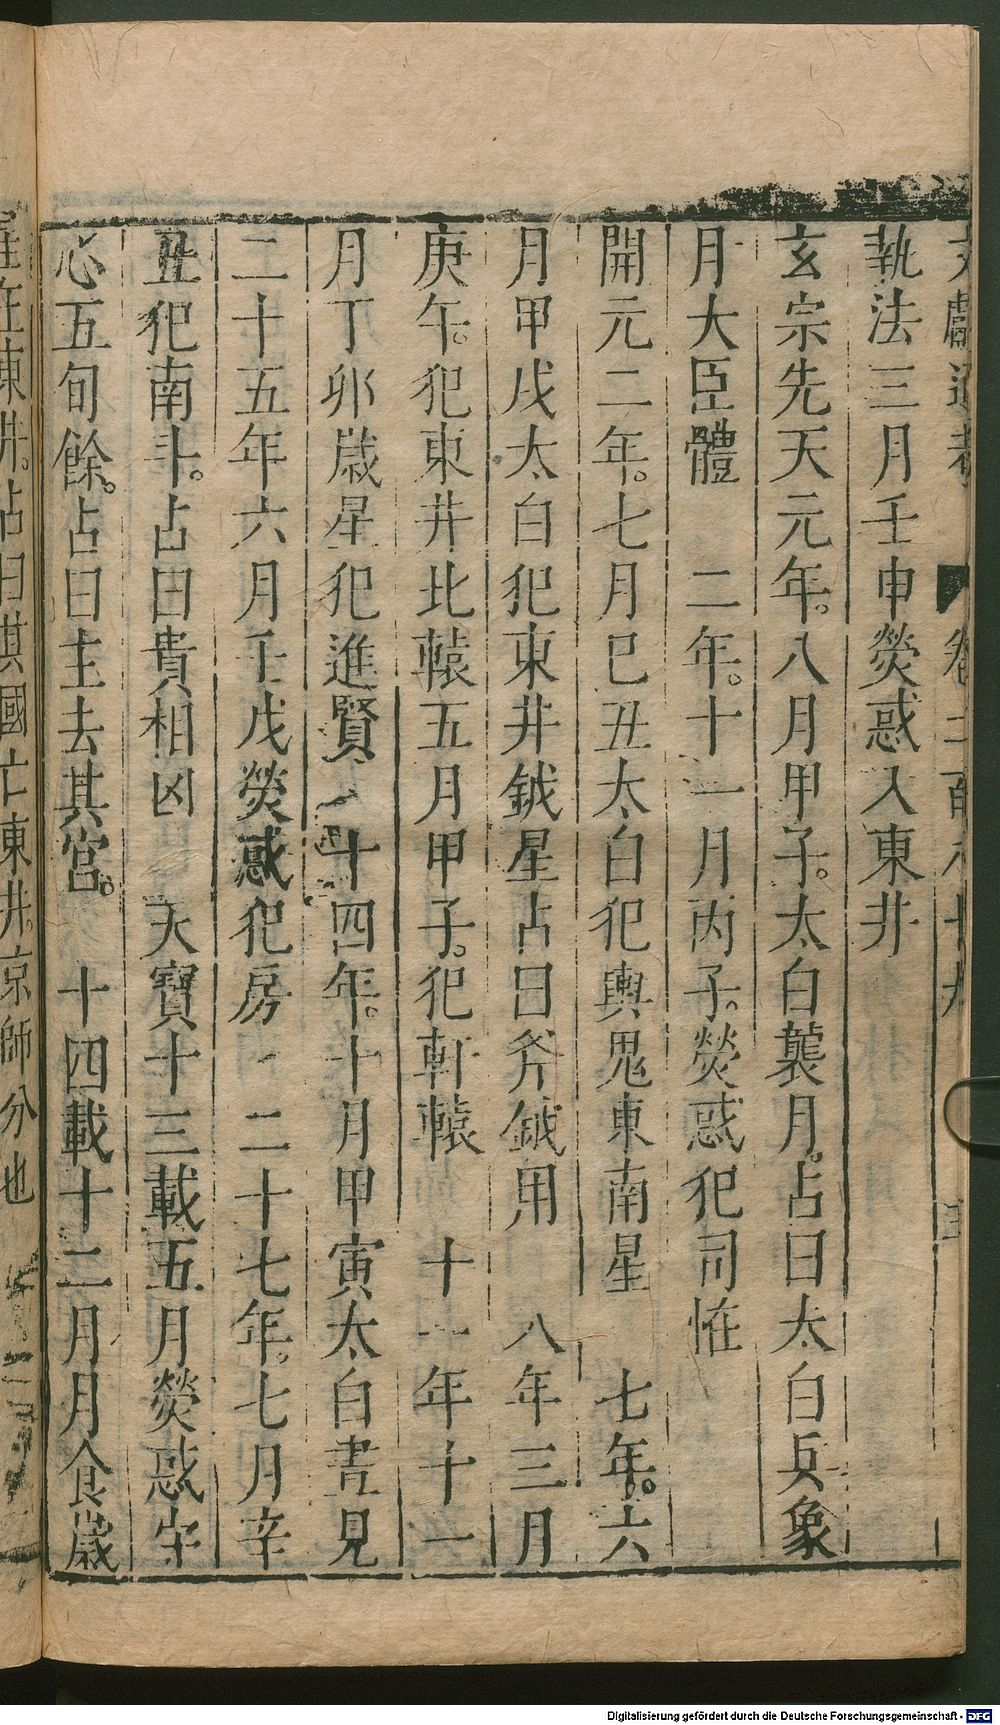 文獻通考 卷二百八十九
執法三月壬申熒惑入東井
玄宗先天元年八月甲子太白襲月占曰太白兵象
月大臣體 二年十一月丙子熒惑犯司恠
開元二年七月巳丑太白犯輿鬼東南星 七年六
月甲戌太白犯東井鉞星占曰斧鉞用 八年三月
庚午犯東井北轅五月甲子犯軒轅 十一年十一
月丁卯歲星犯進賢 十四年十月甲寅太白晝見
二十五年六月壬戌熒惑犯房 二十七年七月辛
丑犯南斗占曰貴相凶 天寶十三載五月熒惑守
心五旬餘占曰主去其宮 十四載十二月月食歲
在東井占曰其國亡東井京師分也
Digitalisierung gefördert durch die Deutsche Forschungsgemeinschaft - DFG